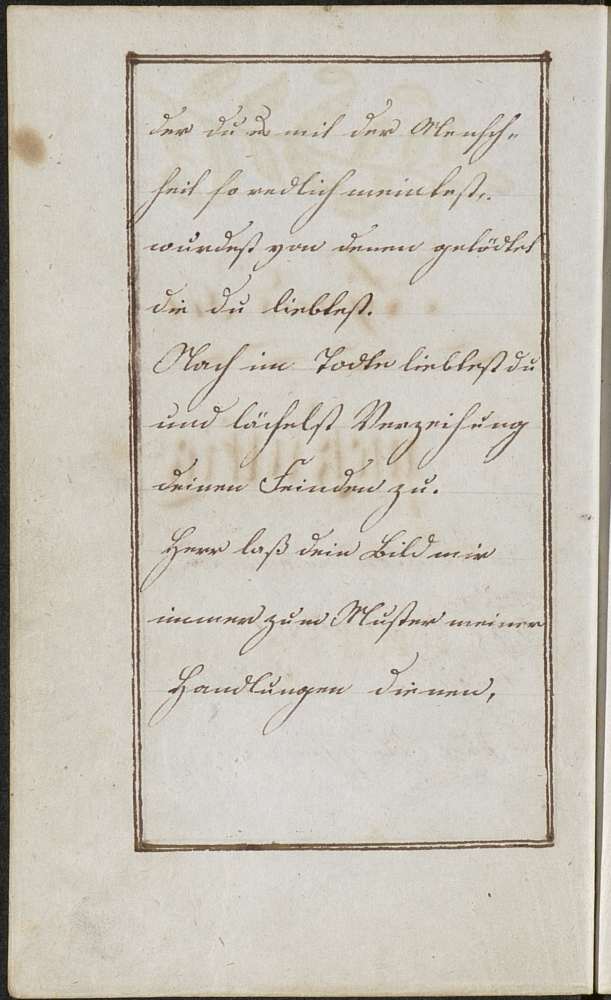 der du es mit der Mensch„
heit so redlich meintest„
wurdest von denen getödtet
die du liebtest.
Nach im Todte liebtest du
und lächelst Verzeihung
deinen Feinden zu.
Herr laß dein Bild mir
immer zum Muster meiner
Handlungen dienen,